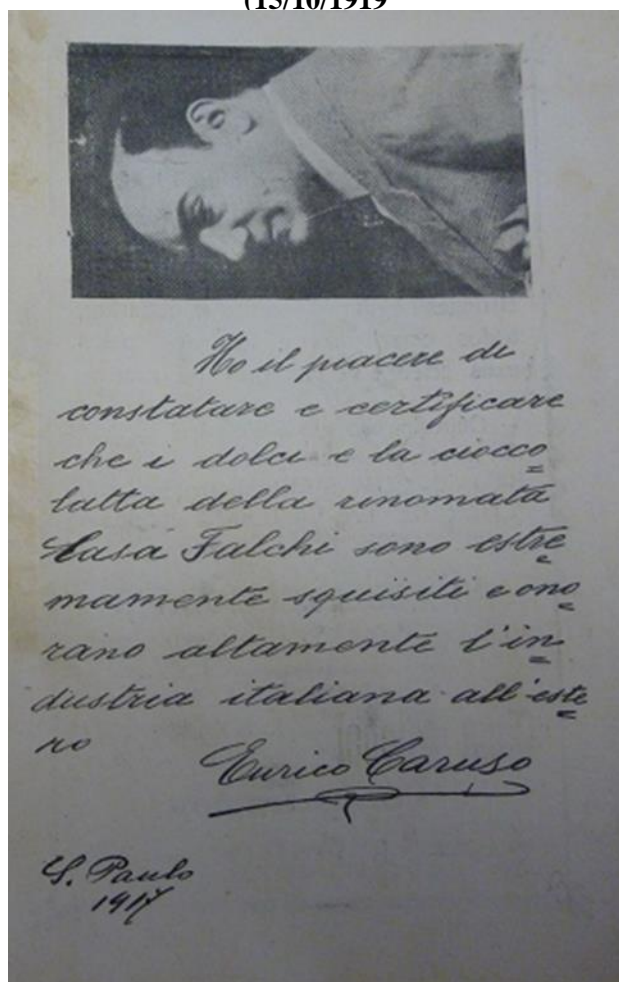 (15/10/1919
Ho il piacere di
constatare e certificare
che i dolci e la ciocco=
latta della rinomata
Casa Falchi sono estre=
mamente squisiti e ono=
rano altamente l'in=
dustria italiana all'este=
ro
Enrico Caruso
S. Paulo
1917